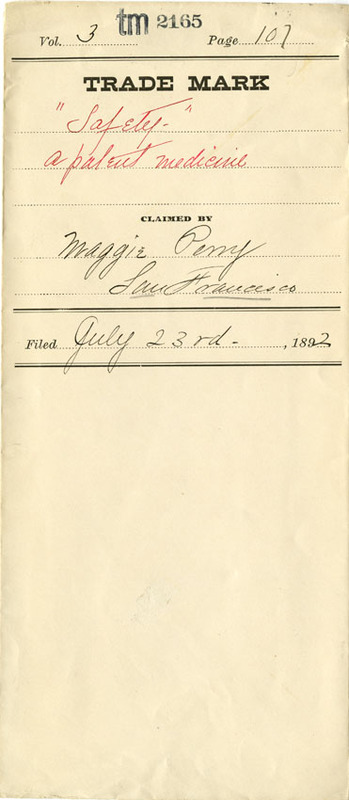 tm 2165
Vol. 3 Page 107
TRADE MARK
"Safety-"
a patent medicine
CLAIMED BY
Maggie Perry
San Francisco
Filed July 23rd- , 1892